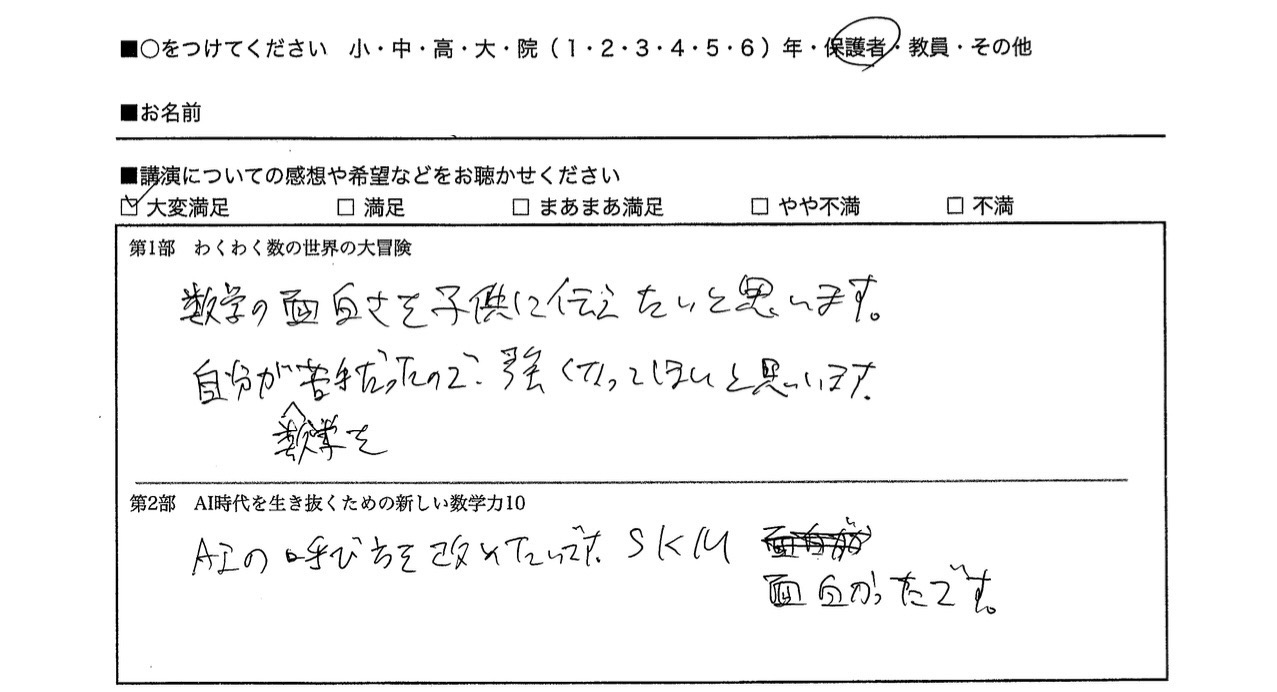 ■○をつけてください 小・中・高・大・院（1・2・3・4・5・6）年・保護者・教員・その他
■お名前
■講演についての感想や希望などをお聴かせください
☑ 大変満足 □ 満足 □ まあまあ満足 □ やや不満 □ 不満
第1部 わくわく数の世界の大冒険
数学の面白さを子供に伝えたいと思います。
自分が苦手だったので、強くなってほしいと思います。
数学を
第2部 AI時代を生き抜くための新しい数学力10
AIの呼び方を改めたいです。SKM
面白かったです。